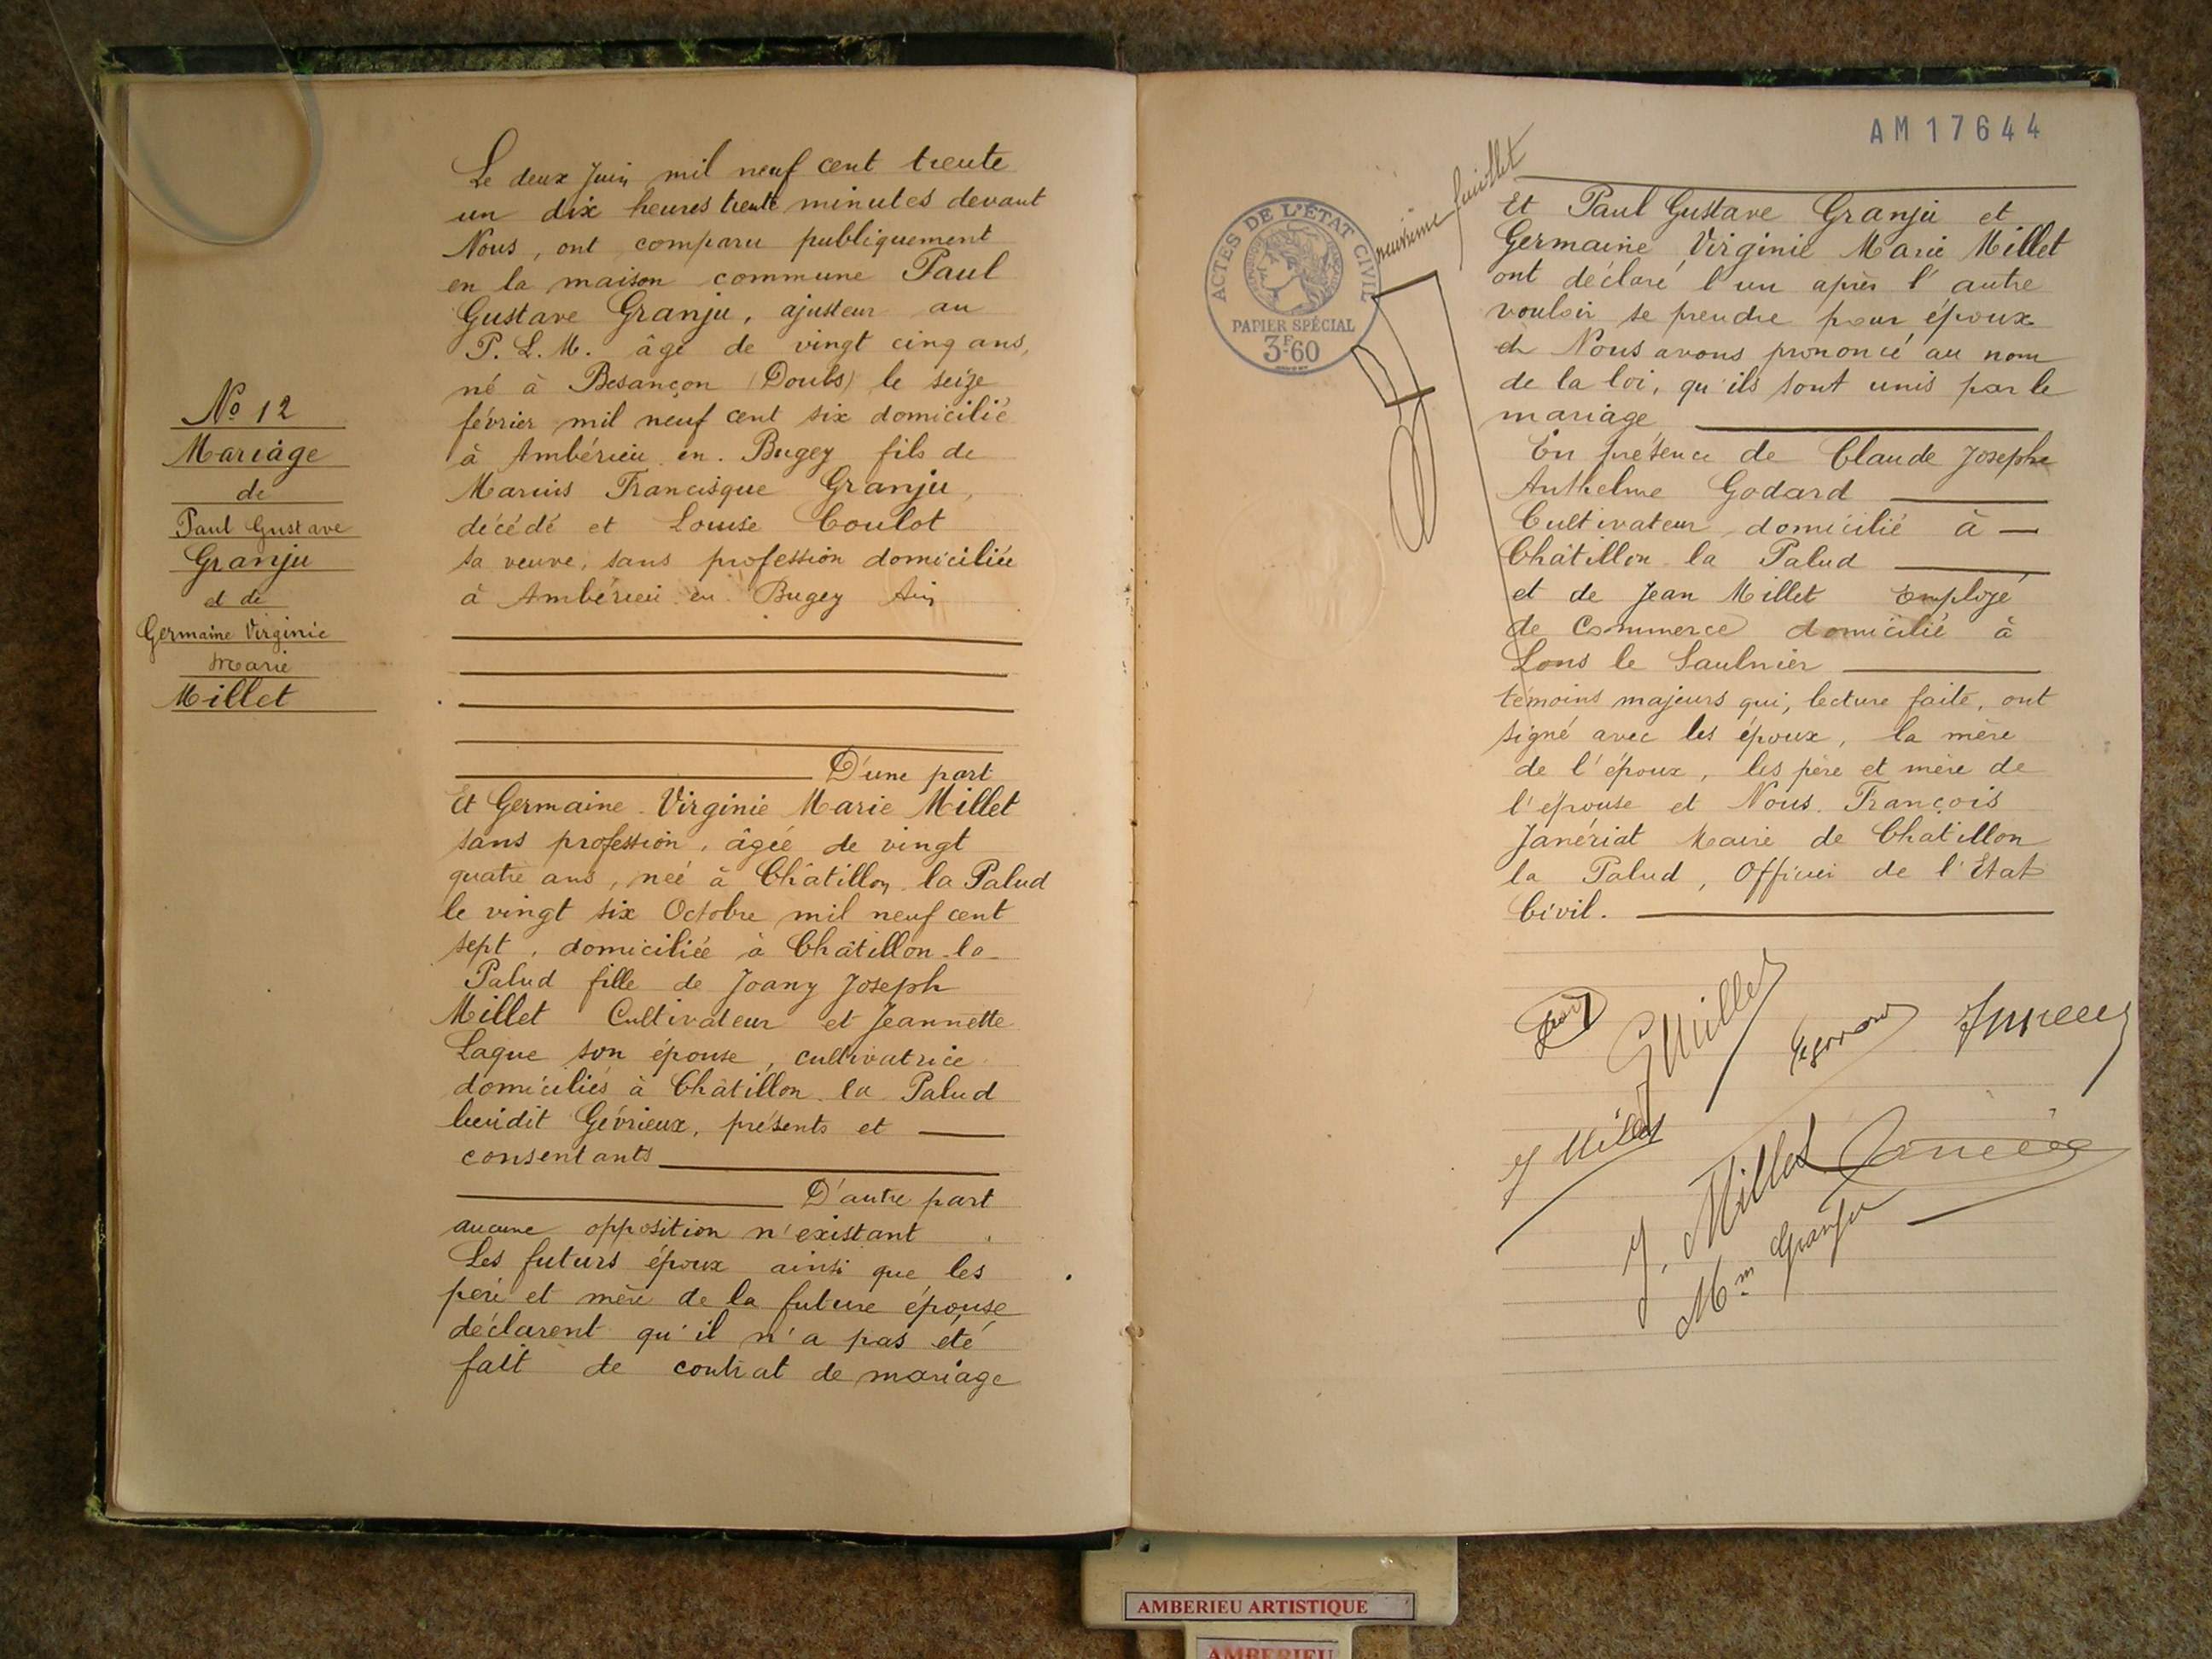 Le deux Juin mil neuf cent trente
un dix heures trente minutes devant
Nous, ont comparu publiquement
en la maison commune Paul
Gustave Granju, ajusteur au
P. L. M. âgé de vingt cinq ans,
né à Besançon (Doubs) le seize
février mil neuf cent six domicilié
à Ambérieu en Bugey fils de
Marius Francisque Granju,
décédé et Louise Coulot
sa veuve, sans profession domiciliée
à Ambérieu en Bugey Ain
D'une part
Et Germaine Virginie Marie Millet
sans profession, âgée de vingt
quatre ans, née à Châtillon la Palud
le vingt six Octobre mil neuf cent
sept, domiciliée à Châtillon-la-
Palud fille de Joany Joseph
Millet Cultivateur et Jeannette
Laque son épouse, cultivatrice
domiciliés à Châtillon la Palud
lieudit Gévrieux, présents et
consentants
D'autre part
aucune opposition n'existant
Les futurs époux ainsi que les
père et mère de la future épouse
déclarent qu'il n'a pas été
fait de contrat de mariage
No 12
Mariage
de
Paul Gustave
Granju
et de
Germaine Virginie
Marie
Millet
AM17644
neuvième feuillet
ACTES DE L'ÉTAT CIVIL
PAPIER SPÉCIAL
3F60
Et Paul Gustave Granju et
Germaine Virginie Marie Millet
ont déclaré l'un après l'autre
vouloir se prendre pour époux
et Nous avons prononcé au nom
de la loi, qu'ils sont unis par le
mariage
En présence de Claude Joseph
Anthelme Godard
Cultivateur domicilié à
Châtillon la Palud
et de Jean Millet Employé
de Commerce domicilié à
Lons le Saulnier
témoins majeurs qui, lecture faite, ont
signé avec les époux, la mère
de l'époux, les père et mère de
l'épouse et Nous François
Janériat Maire de Châtillon
la Palud, Officier de l'Etat
Civil.
G Millet
J Millet
J. Millet
Mm Granju
AMBERIEU ARTISTIQUE
AMBERIEU